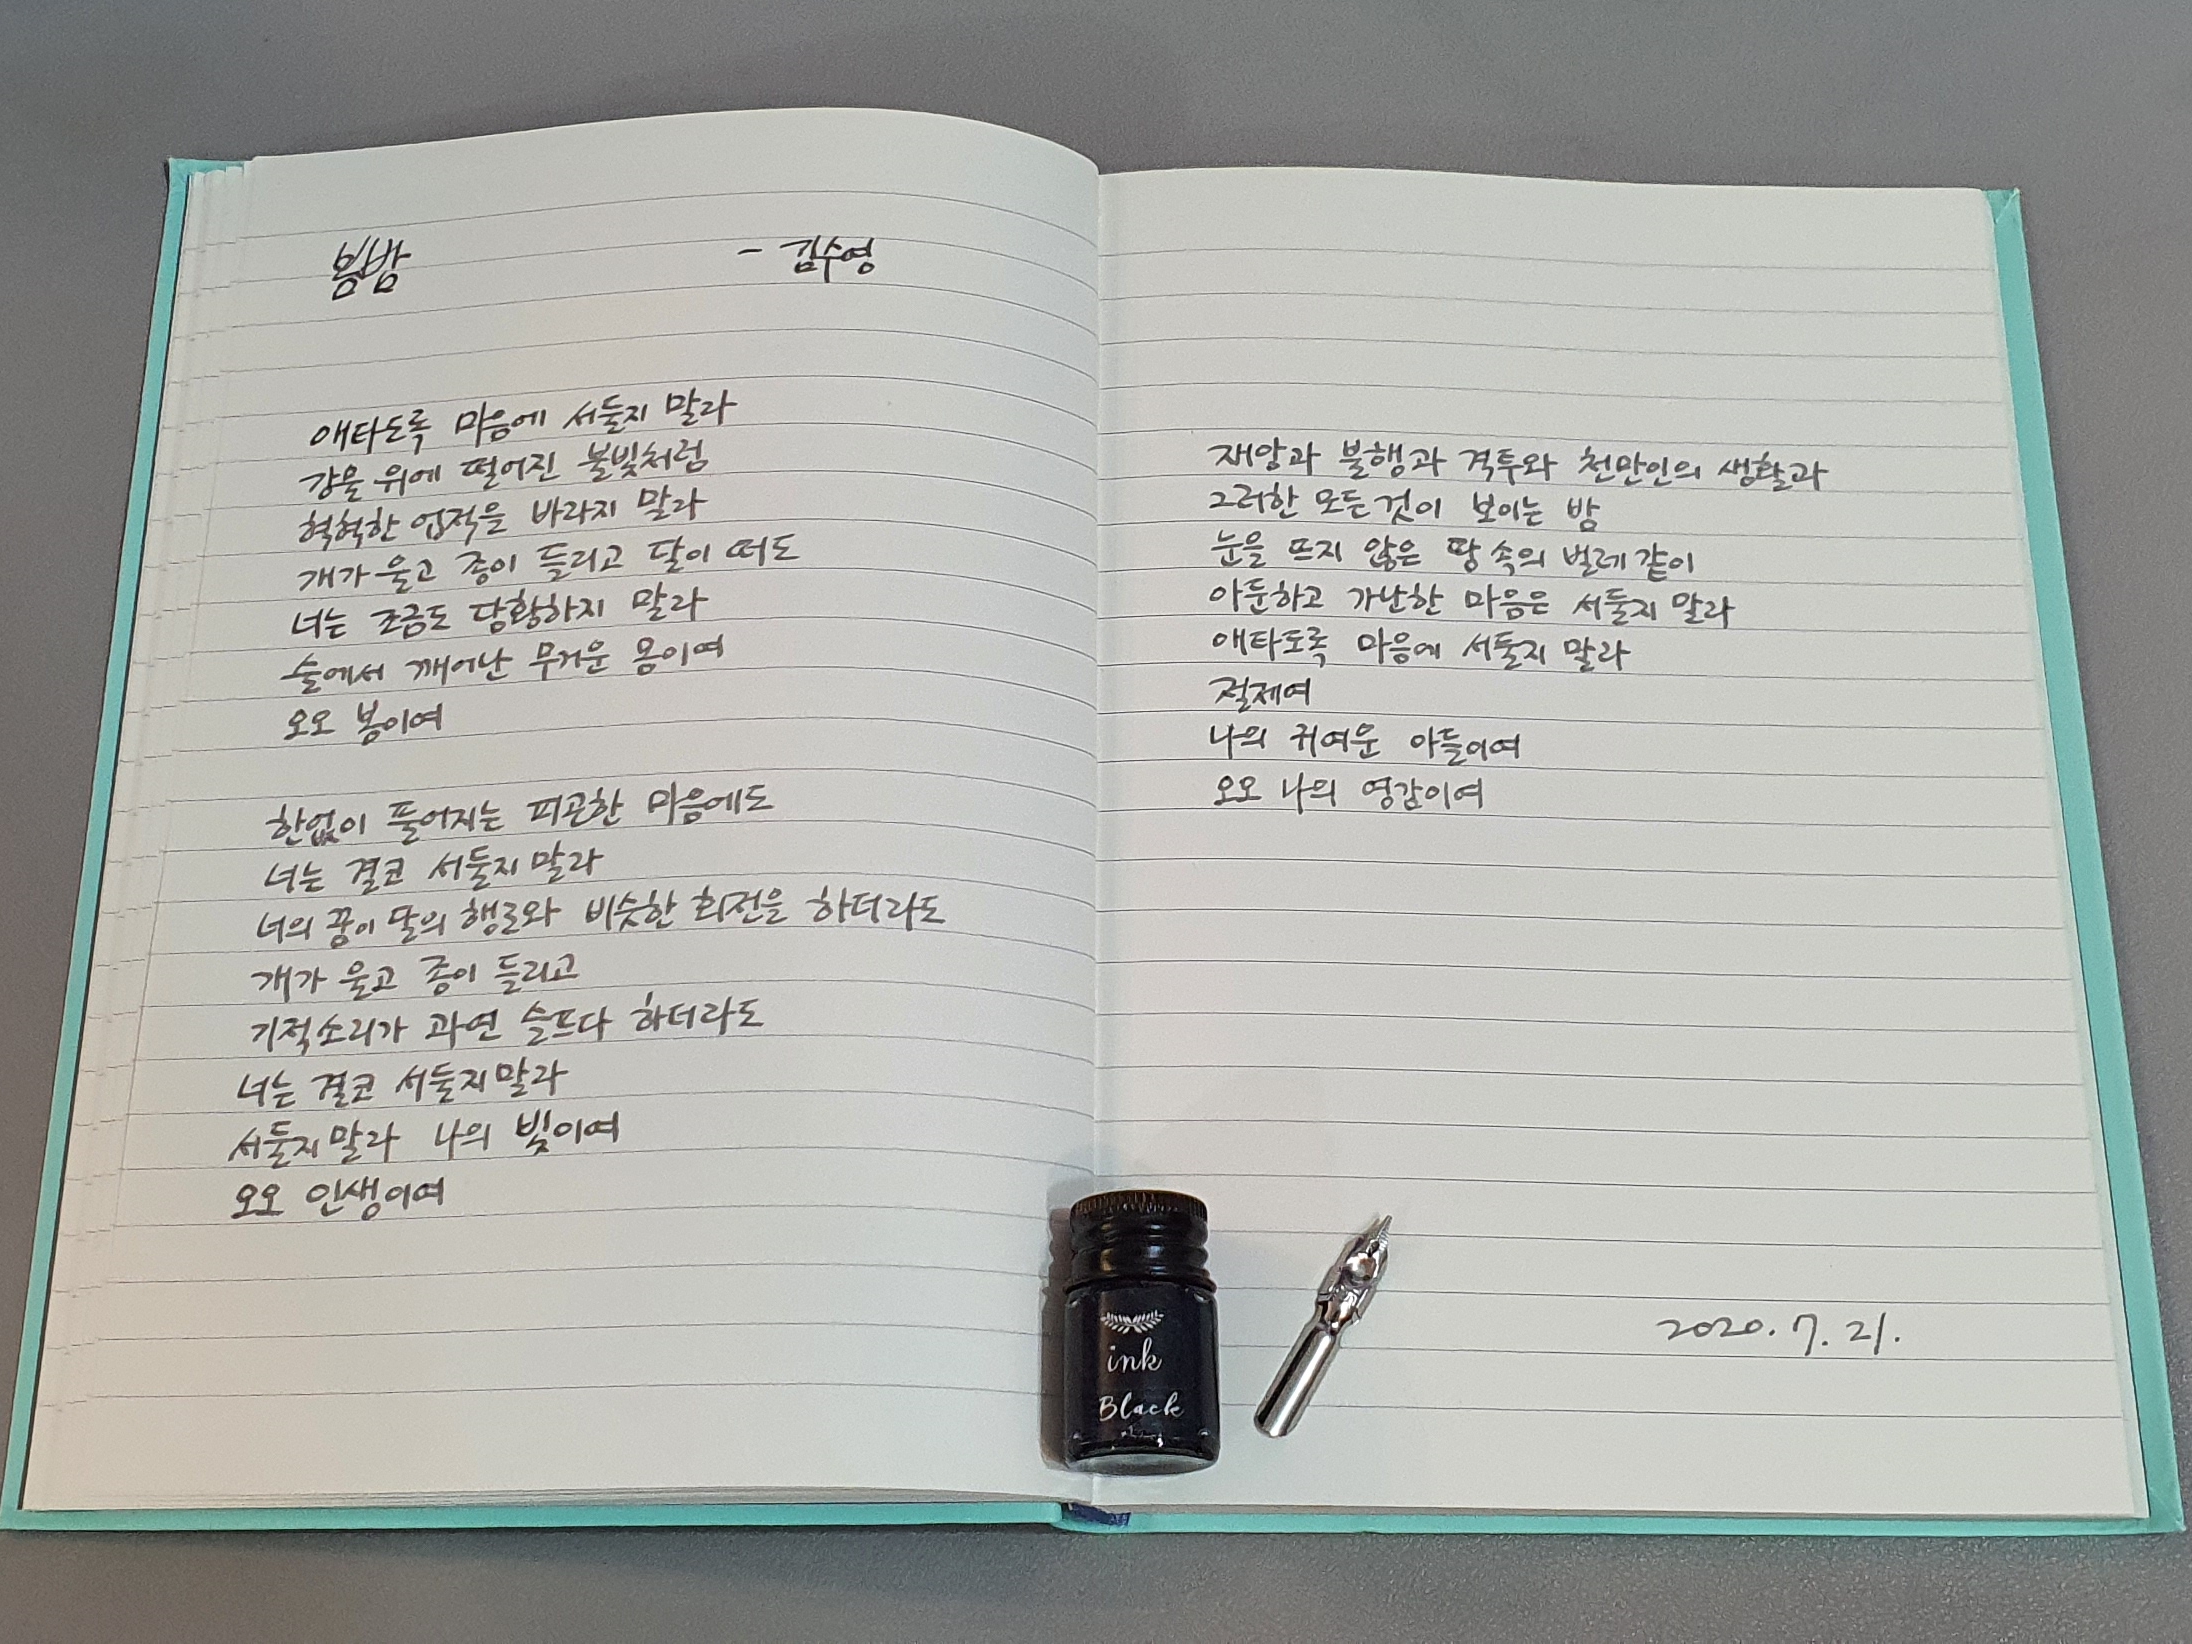 봄밤 - 김수영
애타도록 마음에 서둘지 말라
강물 위에 떨어진 불빛처럼
혁혁한 업적을 바라지 말라
개가 울고 종이 들리고 달이 떠도
너는 조금도 당황하지 말라
술에서 깨어난 무거운 몸이여
오오 봄이여
한없이 풀어지는 피곤한 마음에도
너는 결코 서둘지 말라
너의 꿈이 달의 행로와 비슷한 회전을 하더라도
개가 울고 종이 들리고
기적소리가 과연 슬프다 하더라도
너는 결코 서둘지 말라
서둘지 말라 나의 빛이여
오오 인생이여
재앙과 불행과 격투와 천만인의 생활과
그러한 모든 것이 보이는 밤
눈을 뜨지 않은 땅속의 벌레같이
아둔하고 가난한 마음은 서둘지 말라
애타도록 마음에 서둘지 말라
절제여
나의 귀여운 아들이여
오오 나의 영감이여
2020. 7. 21.
ink
Black